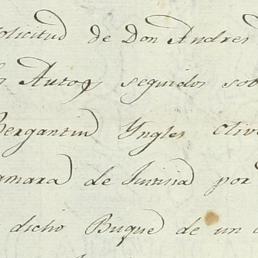 solicitud de Don Andres
Autos seguidos sob
Bergantin Yngles Oliv
amara de Justicia por
dicho Buque de un